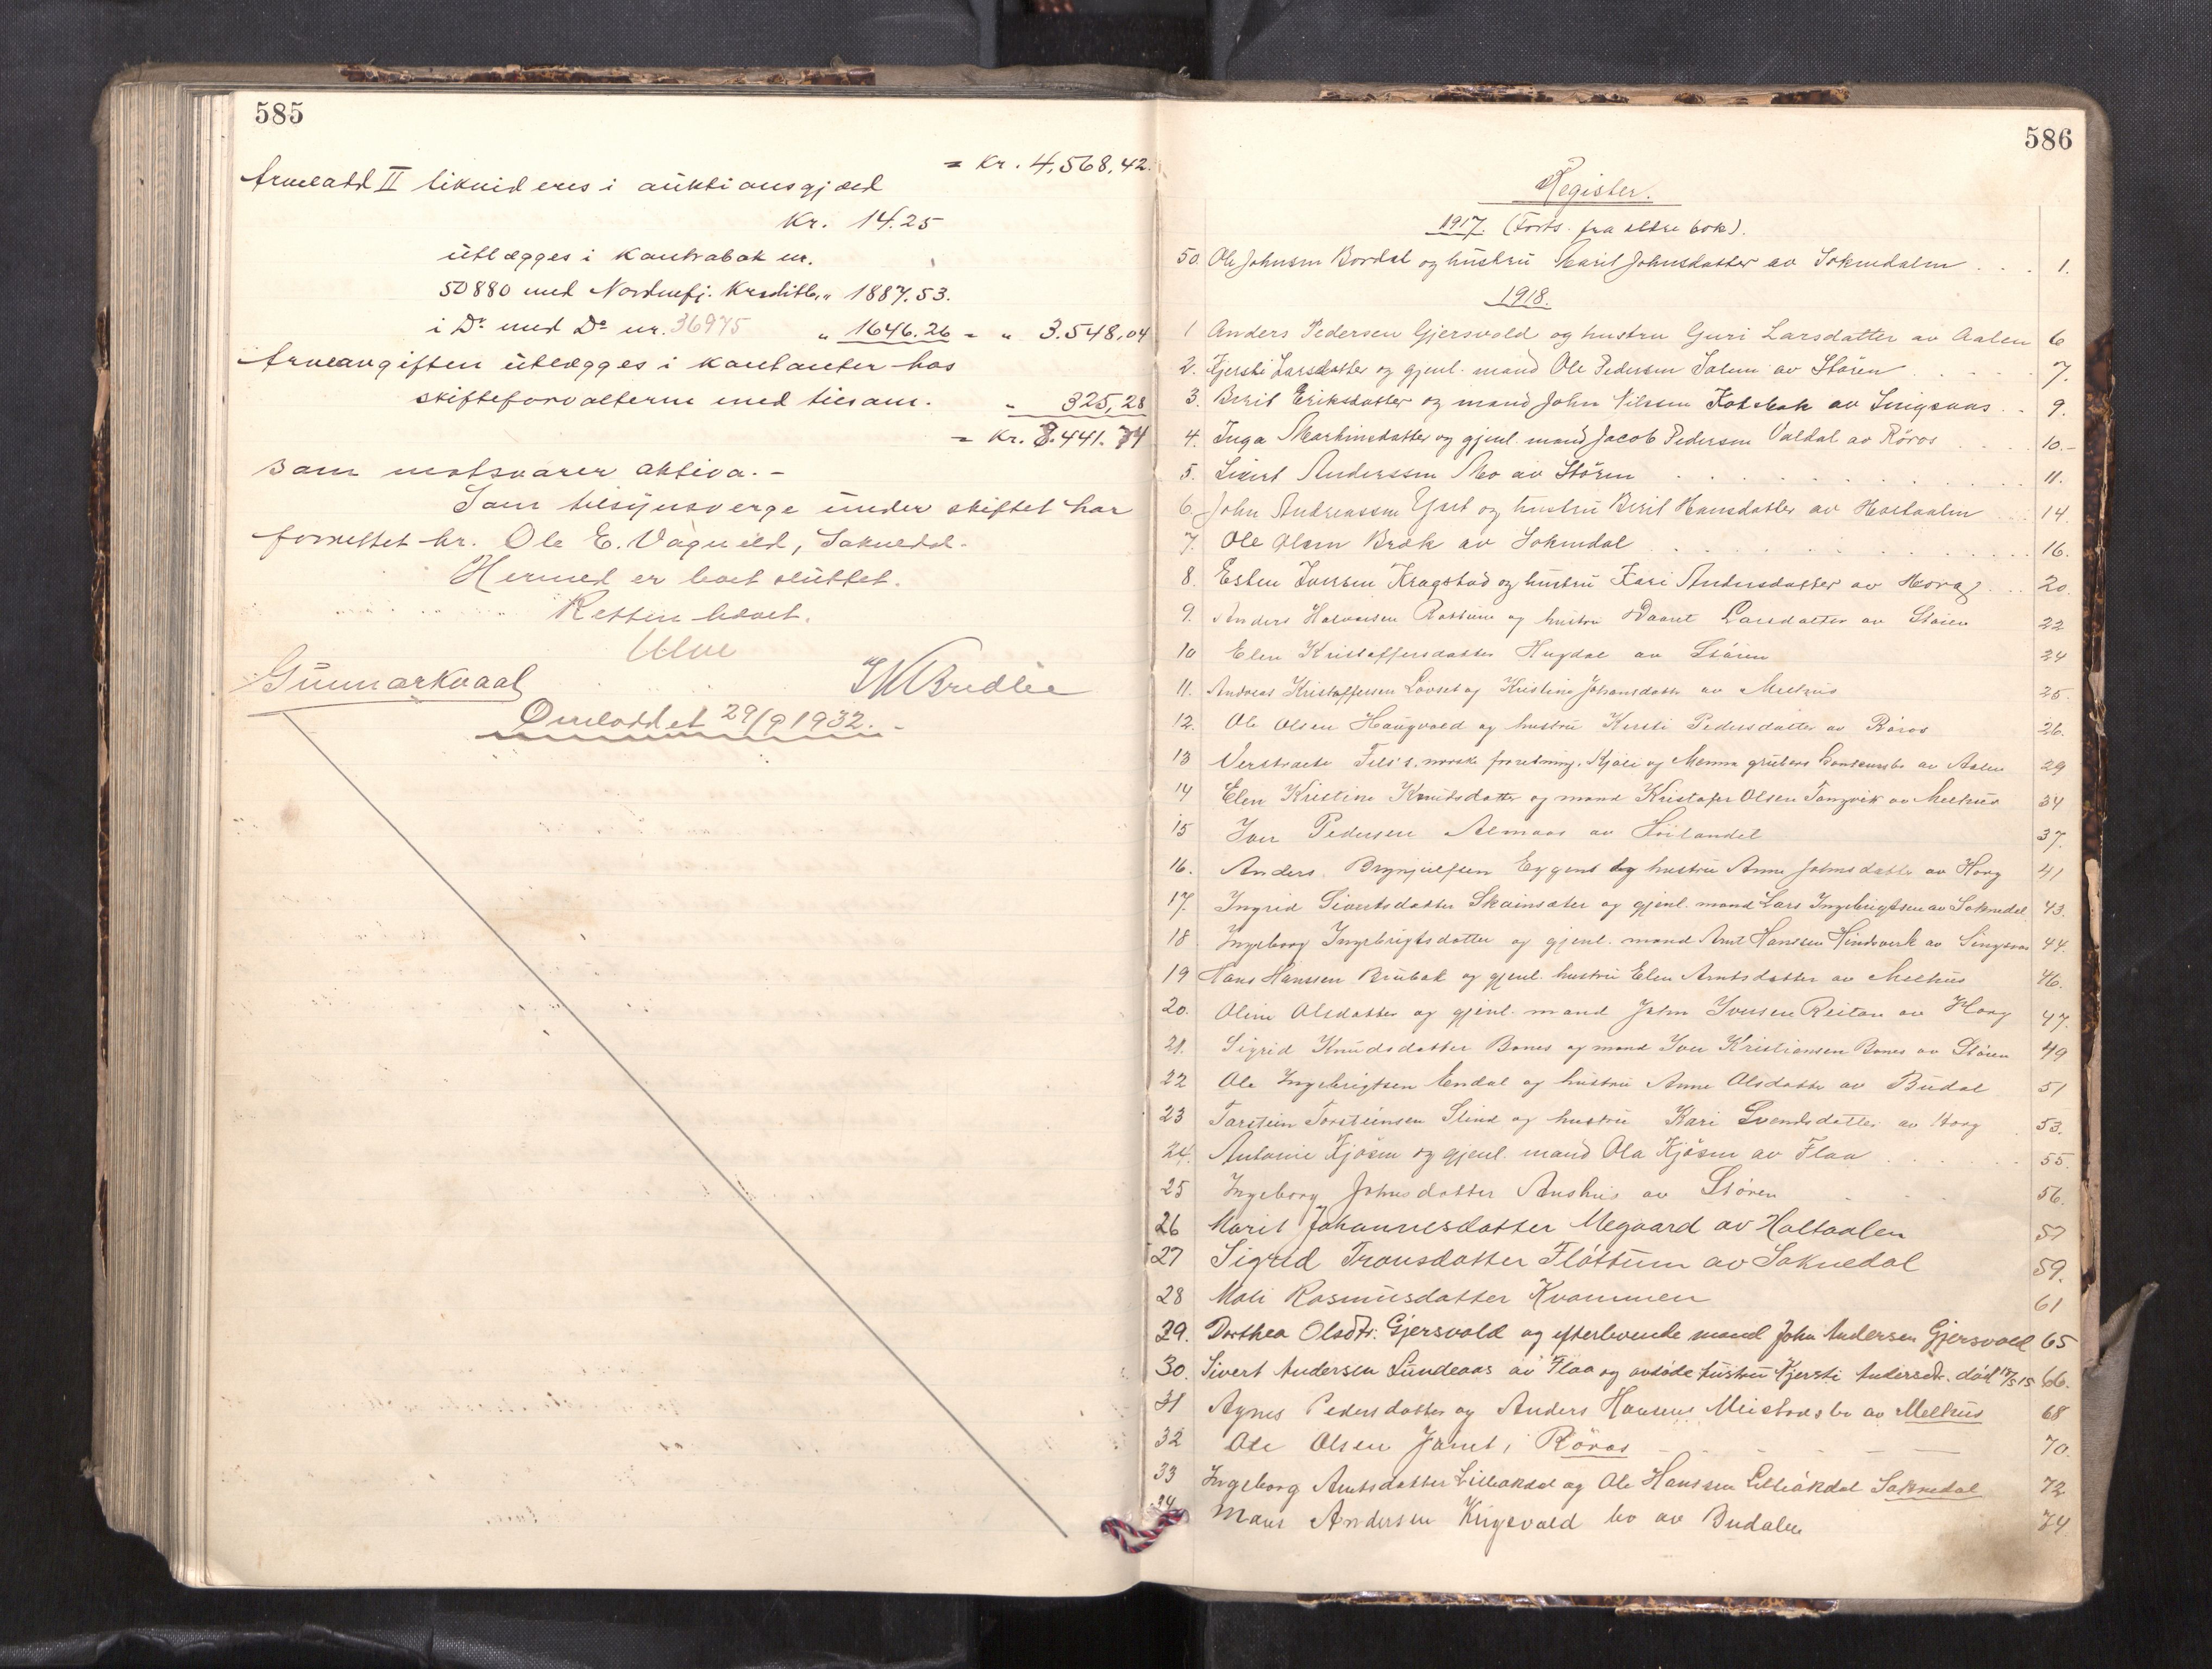 585
= Kr. 4,568,42.
Arvelodd II likvideres i auktionsgjæld
Kr. 14.25
utlægges i kontrabok nr.
50880 med Nordenfj. Kreditb. „ 1887.53.
i Do med Do nr. 36975 „ 1646.26 = „ 3.548,04
Arveavgiften utlægges i kontanter hos
skifteforvalteren med tilsam. „ 325,28
= Kr. 8.441.74
som motsvarer aktiva. -
Som tilsynsverge under skiftet har
forrettet hr. Ole E. Vagnild, Soknedal.
Hermed er boet sluttet.
Retten hævet.
Gunnar Kvaal
Omloddet 29/9 1932. -
586
Register.
1917. (Forts. fra eldre bok).
50. Ole Johnsen Bordal og hustru Marit Johnsdatter av Soknedalen . . . 1.
1918.
1 Anders Pedersen Gjersvold og hustru Guri Larsdatter av Aalen 6
2. Kjersti Larsdatter og gjenl. mand Ole Pedersen Solem av Støren 7.
3. Berit Eriksdatter og mand John Nilssen Kotsbak av Singsaas . . 9.
4. Inga Martinsdatter og gjenl. mand Jacob Pedersen Valdal av Röros 10.-
5. Sivert Anderssen Mo av Stören 11.
6. John Andreassen Yset og hustru Berit Hansdatter av Holtaalen 14.
7. Ole Olsen Bræk av Soknedal 16.
8. Esten Iversen Kragstad og hustru Kari Andersdatter av Horg . . . 20.
9. Anders Halvorsen Rostum og hustru Maret Larsdatter av Støren 22
10 Elen Kristoffersdatter Hugdal av Støren 24
11. Andreas Kristoffersen Løvset og Kristine Johansdatter av Melhus 25.
12. Ole Olsen Haugvold og hustru Kirsti Pedersdatter av Röros 26.
13 norske forretning, Kjøli og Menna grubers av Aalen 29
14 Elen Kristine Knutsdatter og mand Kristofer Olsen Tangvik av Melhus 34
15 Iver Pedersen Almaas av Hølandet 37.
16. Anders Brynjulfsen Eggen og hustru Anne Johnsdatter av Horg 41
17. Ingrid Sivertsdatter Skainsæter og gjenl. mand Lars Ingebrigtsen av Soknedal 43.
18. Ingeborg Ingebrigtsdatter og gjenl. mand Arnt Hanssen Hindverk av Singsaas 44.
19 Hans Hanssen Brubak og gjenl. hustru Elen Arntsdatter av Melhus 46.
20. Oline Olsdatter og gjenl. mand John Iversen Reitan av Horg 47.
21. Sigrid Knudsdatter Bones og mand Iver Kristiansen Bones av Støren 49
22 Ole Ingebrigtsen Endal og hustru Anne Olsdatter av Budal 51
23 Torstein Torsteinsen Slind og hustru Kari Svendsdatter av Horg 53.
24. Antonie Kjösen og gjenl. mand Ola Kjösen av Flaa 55.
25 Ingeborg Johnsdatter Aushus av Støren 56.
26 Marit Johannesdatter Megaard av Holtaalen 57
27 Sigrid Tronsdatter Fløttum av Soknedal 59.
28 Mali Rasmusdatter Kvammen 61
29. Dorthea Olsdtr. Gjersvold og efterlevende mand John Andersen Gjersvold 65
30. Sivert Andersen Sundeaas av Flaa og avdöde hustru Kjersti Andersdt. död 17/5 15 66.
31 Agnes Pedersdatter og Anders Hansens bo av Melhus 68
32 Ole Olsen Jamt, Röros 70.
33 Ingeborg Arntsdatter Lilleökdal og Ole Hanssen Lilleökdal Soknedal 72
34 Mons Andersen Krigsvold bo av Budalen 74